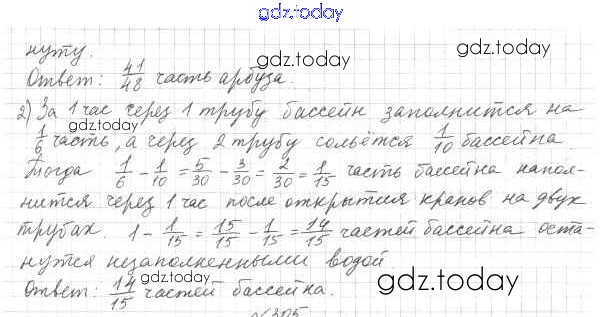 gdz.today
нуту. gdz.today gdz.today
Ответ: 41/48 часть арбуза.
2) За 1 час через 1 трубу бассейн заполнится на
1/6 часть, а через 2 трубу сольётся 1/10 бассейна.
gdz.today
Тогда 1/6 - 1/10 = 5/30 - 3/30 = 2/30 = 1/15 часть бассейна напол-
нится через 1 час после открытия кранов на двух
трубах. 1 - 1/15 = 15/15 - 1/15 = 14/15 частей бассейна оста-
нутся незаполненными водой
gdz.today gdz.today
Ответ: 14/15 частей бассейна.
№305